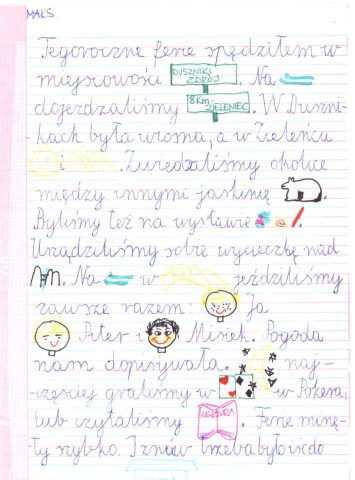 MAKS
Tegoroczne ferie spędziłem w
miejscowości DUSZNIKI ZDRÓJ. Na
dojerdzaliśmy 8 km- ZIELENIEC. W Duszni-
kach była wiosna, a w Zieleńcu
i . Zwiedzaliśmy okolice
między innymi jaskinię .
Byliśmy też na wystawie .
Urządziliśmy sobie wycieczkę nad
. Na w jeździliśmy
zawsze razem: Ja
Piter i Misiek. Pogoda
nam dopisywała. naj-
-częściej graliśmy w w Pokera,
lub czytaliśmy LEKTURA. Ferie minę-
ły szybko. I znów trzeba było iść do